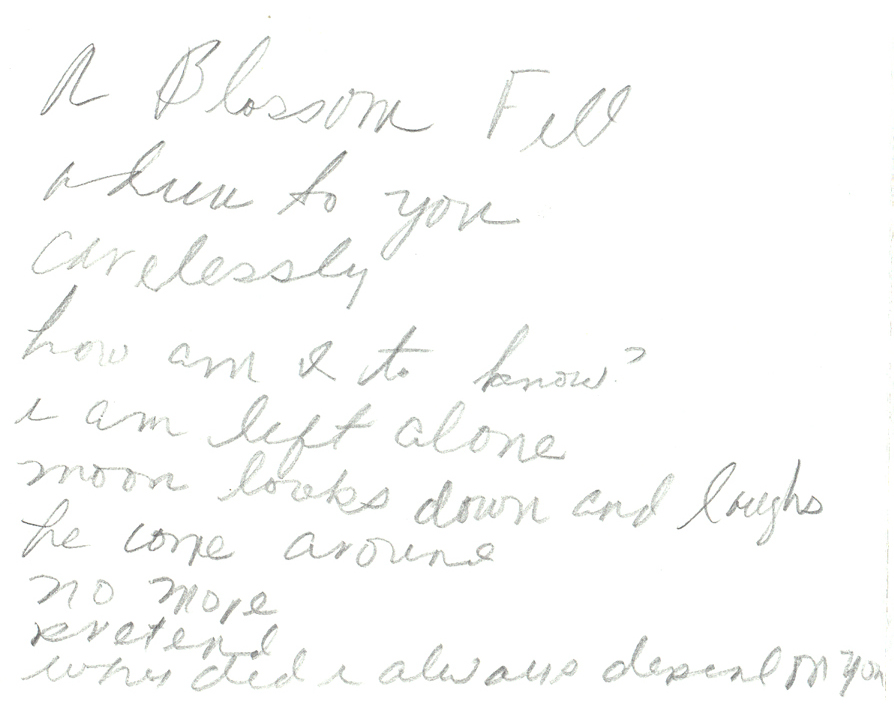 A Blossom Fell
adieu to you
carelessly
how am I to know?
i am left alone
moon looks down and laughs
he come around
no more
pretend
why did i always depend on you